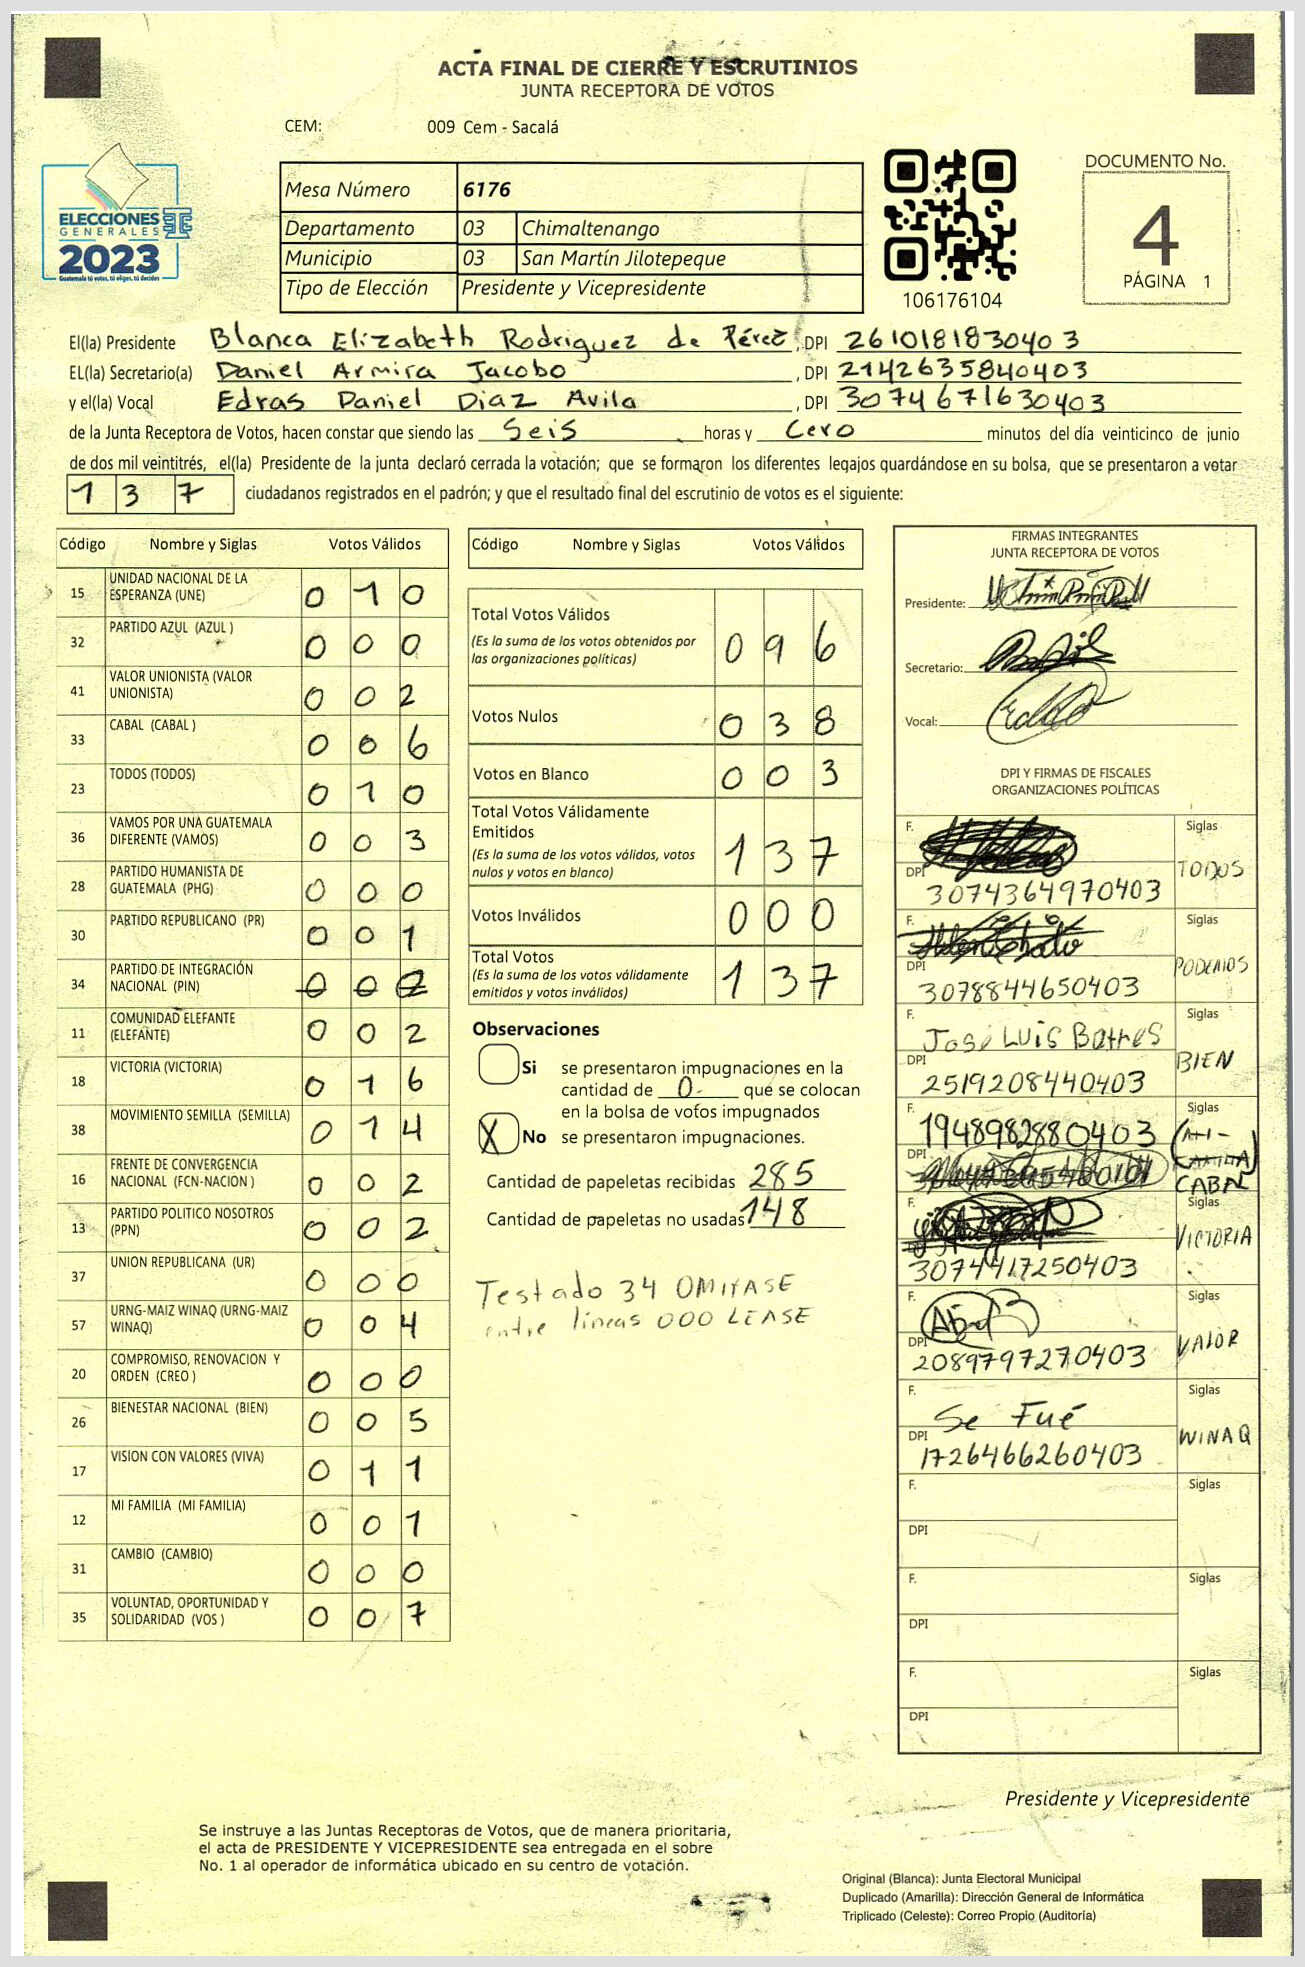 ACTA FINAL DE CIERRE Y ESCRUTINIOS
JUNTA RECEPTORA DE VOTOS
CEM: 009 Cem - Sacalá
ELECCIONES
GENERALES
2023
Guatemala tú votas, tú eliges, tú decides
Mesa Número 6176
Departamento 03 Chimaltenango
Municipio 03 San Martín Jilotepeque
Tipo de Elección Presidente y Vicepresidente
106176104
DOCUMENTO No.
4
PÁGINA 1
El(la) Presidente Blanca Elizabeth Rodriguez de Pérez, DPI 2610181830403
EL(la) Secretario(a) Daniel Armira Jacobo, DPI 2142635840403
y el(la) Vocal Edras Daniel Diaz Avila, DPI 3074671630403
de la Junta Receptora de Votos, hacen constar que siendo las Seis horas y Cero minutos del día veinticinco de junio
de dos mil veintitrés, el(la) Presidente de la junta declaró cerrada la votación; que se formaron los diferentes legajos guardándose en su bolsa, que se presentaron a votar
137 ciudadanos registrados en el padrón; y que el resultado final del escrutinio de votos es el siguiente:
Código Nombre y Siglas Votos Válidos
15 UNIDAD NACIONAL DE LA ESPERANZA (UNE) 010
32 PARTIDO AZUL (AZUL ) 000
41 VALOR UNIONISTA (VALOR UNIONISTA) 002
33 CABAL (CABAL ) 006
23 TODOS (TODOS) 010
36 VAMOS POR UNA GUATEMALA DIFERENTE (VAMOS) 003
28 PARTIDO HUMANISTA DE GUATEMALA (PHG) 000
30 PARTIDO REPUBLICANO (PR) 001
34 PARTIDO DE INTEGRACIÓN NACIONAL (PIN) 00
11 COMUNIDAD ELEFANTE (ELEFANTE) 002
18 VICTORIA (VICTORIA) 016
38 MOVIMIENTO SEMILLA (SEMILLA) 014
16 FRENTE DE CONVERGENCIA NACIONAL (FCN-NACION ) 002
13 PARTIDO POLITICO NOSOTROS (PPN) 002
37 UNION REPUBLICANA (UR) 000
57 URNG-MAIZ WINAQ (URNG-MAIZ WINAQ) 004
20 COMPROMISO, RENOVACION Y ORDEN (CREO ) 000
26 BIENESTAR NACIONAL (BIEN) 005
17 VISION CON VALORES (VIVA) 011
12 MI FAMILIA (MI FAMILIA) 001
31 CAMBIO (CAMBIO) 000
35 VOLUNTAD, OPORTUNIDAD Y SOLIDARIDAD (VOS ) 007
Código Nombre y Siglas Votos Válidos
Total Votos Válidos 096
(Es la suma de los votos obtenidos por
las organizaciones políticas)
Votos Nulos 038
Votos en Blanco 003
Total Votos Válidamente
Emitidos 137
(Es la suma de los votos válidos, votos
nulos y votos en blanco)
Votos Inválidos 000
Total Votos 137
(Es la suma de los votos válidamente
emitidos y votos inválidos)
Observaciones
Si se presentaron impugnaciones en la
cantidad de 0- que se colocan
en la bolsa de votos impugnados
X No se presentaron impugnaciones.
Cantidad de papeletas recibidas 285
Cantidad de papeletas no usadas 148
Testado 34 OMITASE
entre líneas 000 LEASE
FIRMAS INTEGRANTES
JUNTA RECEPTORA DE VOTOS
Presidente:
Secretario:
Vocal:
DPI Y FIRMAS DE FISCALES
ORGANIZACIONES POLÍTICAS
F. Siglas
DPI 3074364970403 TODOS
F. Siglas
DPI 3078844650403 PODEMOS
F. José Luis Batres Siglas
DPI 2519208440403 BIEN
F. 1948982880403 Siglas
DPI CABAL
F. Siglas
DPI 3074417250403 VICTORIA
F. Siglas
DPI 2089797270403 VALOR
F. Se Fué Siglas
DPI 1726466260403 WINAQ
F. Siglas
DPI
F. Siglas
DPI
F. Siglas
DPI
Presidente y Vicepresidente
Se instruye a las Juntas Receptoras de Votos, que de manera prioritaria,
el acta de PRESIDENTE Y VICEPRESIDENTE sea entregada en el sobre
No. 1 al operador de informática ubicado en su centro de votación.
Original (Blanca): Junta Electoral Municipal
Duplicado (Amarilla): Dirección General de Informática
Triplicado (Celeste): Correo Propio (Auditoría)